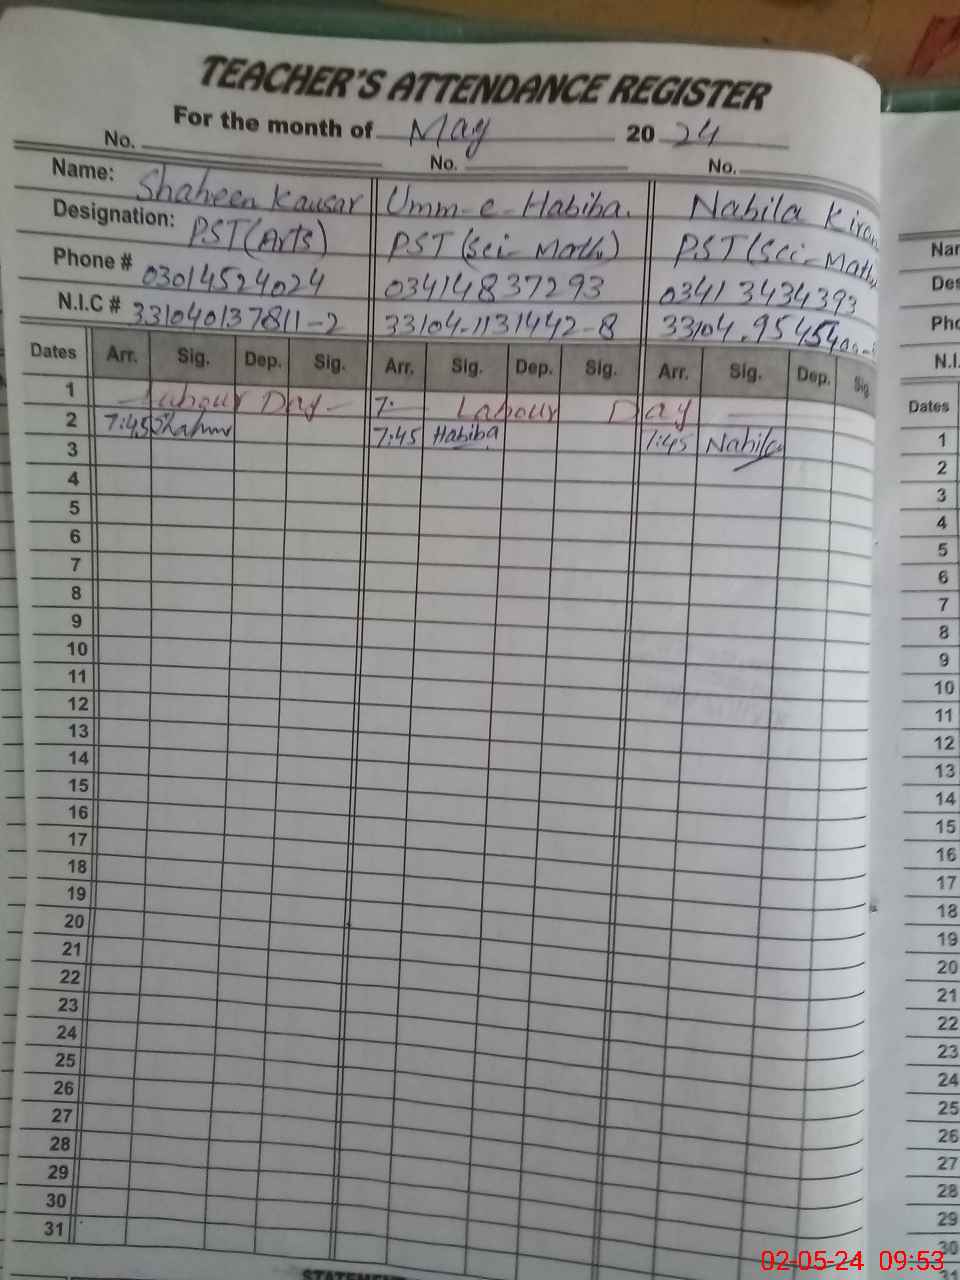 TEACHER'S ATTENDANCE REGISTER
For the month of May 20 24
No. No. No.
Name: Shaheen Kausar Umm-e-Habiba. Nabila Kiran
Designation: PST(Arts) PST(Sci-Math) PST(Sci-Math)
Phone # 03014524024 03414837293 03413434393
N.I.C # 331040137811-2 33104-1131442-8 33104.95454
Dates Arr. Sig. Dep. Sig. Arr. Sig. Dep. Sig. Arr. Sig. Dep. Sig
1 Labour Day 7: Labour Day
2 7:45 7:45 Habiba 7:45 Nabila
3
4
5
6
7
8
9
10
11
12
13
14
15
16
17
18
19
20
21
22
23
24
25
26
27
28
29
30
31
Nar
Des
Pho
N.I.
Dates
1
2
3
4
5
6
7
8
9
10
11
12
13
14
15
16
17
18
19
20
21
22
23
24
25
26
27
28
29
30
02-05-24 09:53